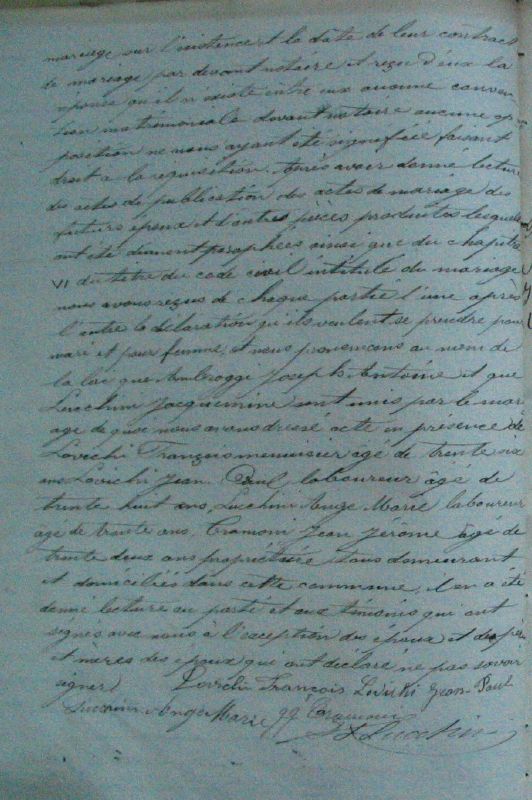 mariage sur l'existence et la date de leur contract
de mariage par devant notaire et reçu d'eux la
réponse qu'il n'existe entre eux aucune conven
tion matrimoniale devant notaire aucune op
position ne nous ayant été signifiée faisant
droit à la requisition. Après avoir donné lecture
des actes de publication des actes de mariage des
futurs époux et d'autres pièces produites lesquelles
ont été dument paraphées ainsi que du chapitre
VI du titre du code civil intitulé du mariage
nous avons reçus de chaque partie l'une après
l'autre la déclaration qu'ils veulent se prendre pour
mari et pour femme, et nous prononçons au nom de
la loi que Ambroggi Joseph Antoine et que
Lucchini Jacquemine sont unis par le mari
age de quoi nous avons dressé acte en présence de
Lovichi François menuisier âgé de trente six
ans Lovichi Jean Paul laboureur âgé de
trente huit ans, Lucchini Ange Marie laboureur
âgé de trente ans, Tramoni Jean Jérôme âgé de
trente deux ans propriétaire tous demeurant
et domiciliés dans cette commune, il en a été
donné lecture au parté et aux témoins qui ont
signés avec nous à l'exception des époux et des per
et mères des époux qui ont déclaré ne pas savoir
signer Lovichi François Lovichi Jean-Paul
Lucchini Ange Marie JJ Tramoni
Lucchini